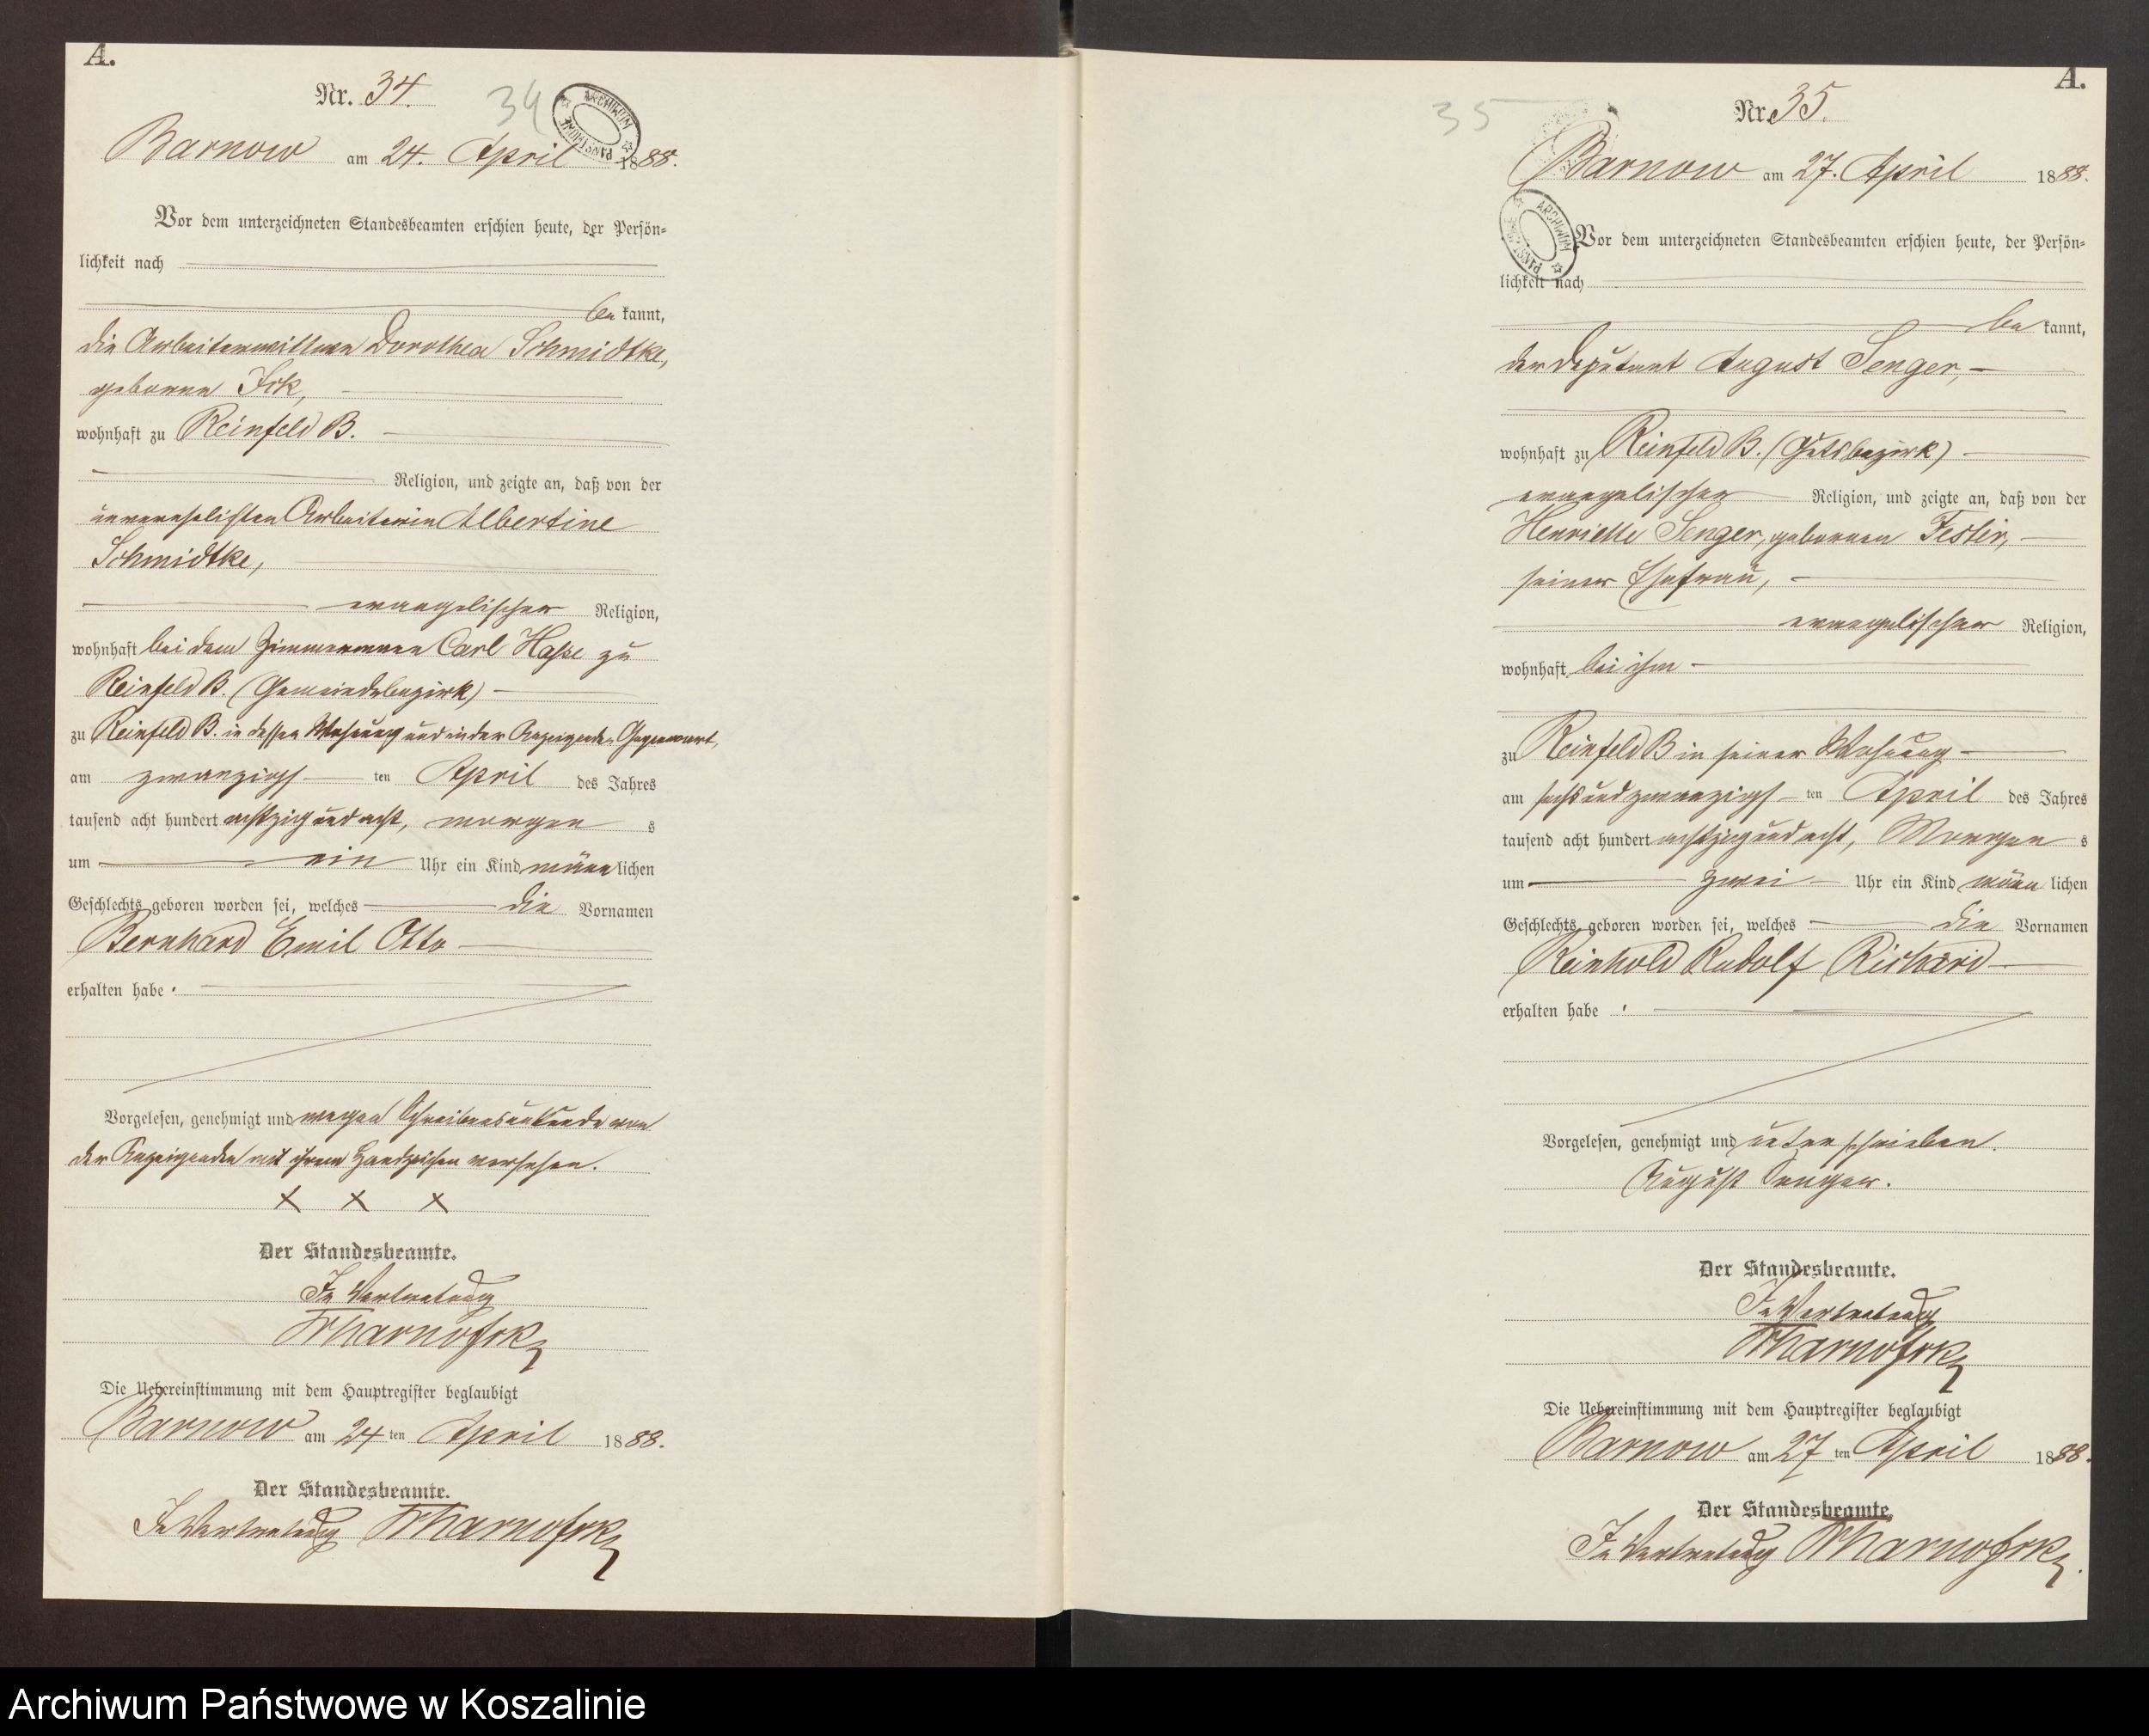 A.
Nr. 34.
34
ARCHIWUM PAŃSTWOWE
Barnow am 24. April 1888.
Vor dem unterzeichneten Standesbeamten erschien heute, der Persön=
lichkeit nach
be kannt,
die Arbeiterwittwe Dorothea Schmidtke,
geborene Ick,
wohnhaft zu Reinfeld B.
Religion, und zeigte an, daß von der
unverehelichten Arbeiterin Albertine
Schmidtke,
evangelischer Religion,
wohnhaft bei dem Zimmermann Carl Hasse zu
Reinfeld B. (Gemeindebezirk)
zu Reinfeld B. in dessen Wohnung und in der Anzeigenden Gegenwart,
am zwanzigsten April des Jahres
tausend acht hundert achtzig und acht, morgen s
um ein Uhr ein Kind männlichen
Geschlechts geboren worden sei, welches die Vornamen
Bernhard Emil Otto
erhalten habe.
Vorgelesen, genehmigt und wegen Schreibensunkunde von
der Anzeigenden mit ihrem Handzeichen versehen.
X X X
Der Standesbeamte.
In Vertretung
Die Uebereinstimmung mit dem Hauptregister beglaubigt
Barnow am 24ten April 1888.
Der Standesbeamte.
In Vertretung
A.
Nr. 35.
35
Barnow am 27. April 1888.
ARCHIWUM PAŃSTWOWE
Vor dem unterzeichneten Standesbeamten erschien heute, der Persön=
lichkeit nach
be kannt,
der Deputant August Senger,
wohnhaft zu Reinfeld B. (Gutsbezirk)
evangelischer Religion, und zeigte an, daß von der
Henriette Senger, geborenen Fester,
seiner Ehefrau,
evangelischer Religion,
wohnhaft bei ihm
zu Reinfeld B in seiner Wohnung
am sechsundzwanzigsten April des Jahres
tausend acht hundert achtzig und acht, Morgen s
um zwei Uhr ein Kind männlichen
Geschlechts geboren worden sei, welches die Vornamen
Reinhold Rudolf Richard
erhalten habe.
Vorgelesen, genehmigt und unterschrieben.
August Senger.
Der Standesbeamte.
In Vertretung
Die Uebereinstimmung mit dem Hauptregister beglaubigt
Barnow am 27ten April 1888.
Der Standesbeamte.
In Vertretung
Archiwum Państwowe w Koszalinie